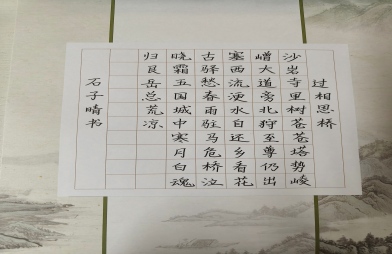 过相思桥
沙岩寺里树苍苍塔势峻
嶒大道旁北狩至尊仍出
塞西流浭水自还乡看花
古驿愁春雨驻马危桥泣
晓霜五国城中寒月白魂
归艮岳总荒凉
石子晴书